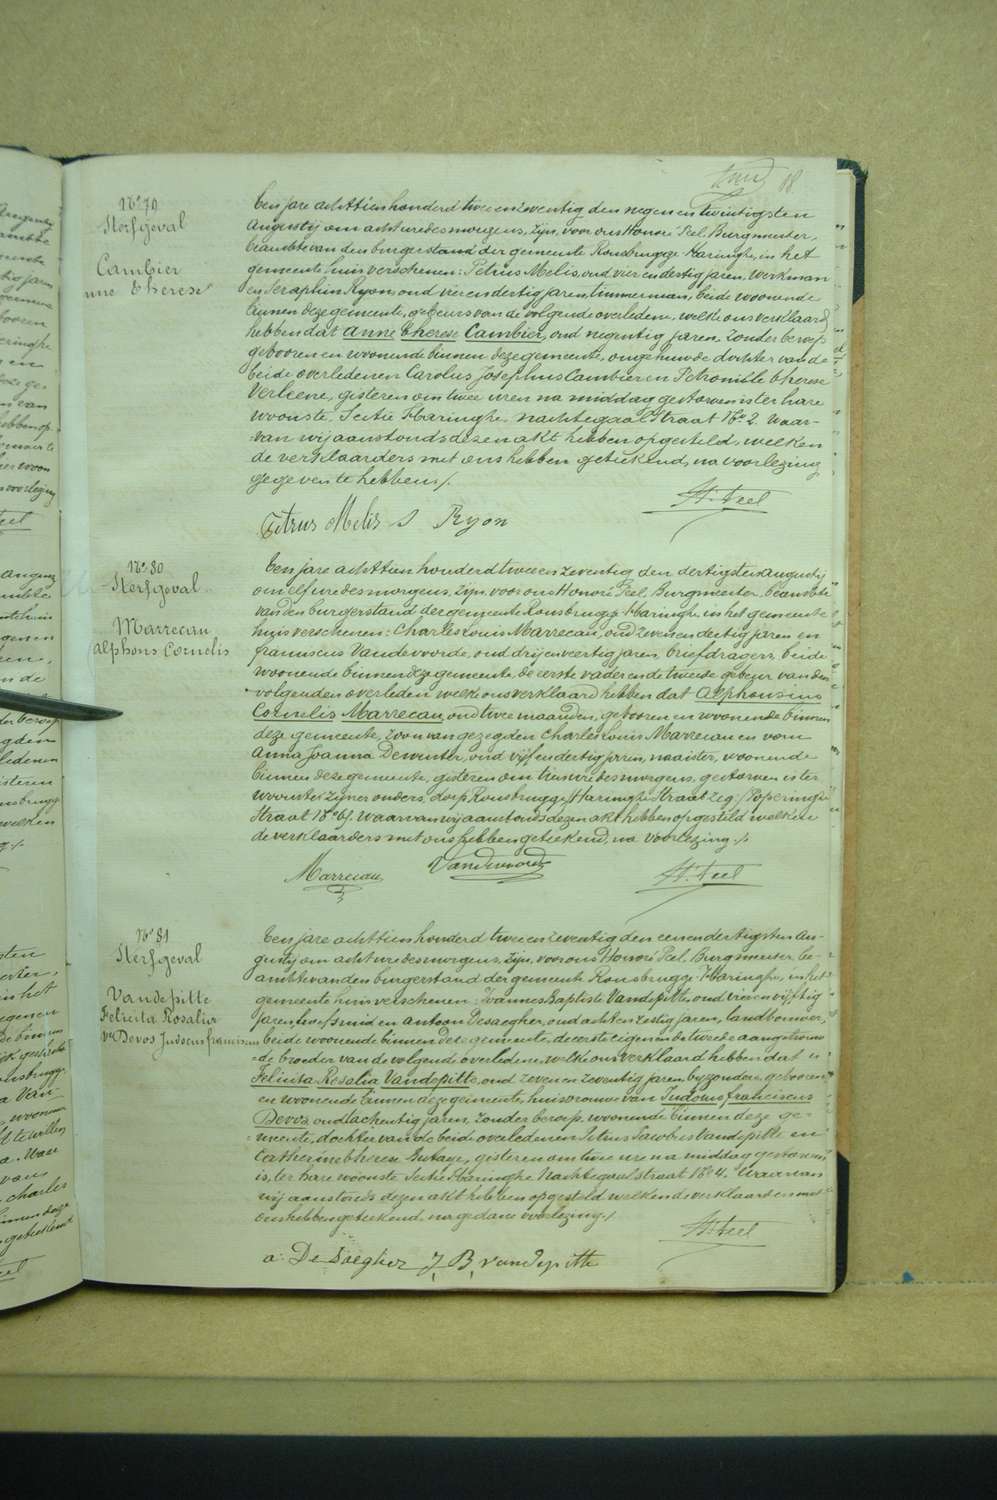 18
N° 79
Sterfgeval
Cambier
nne Therese
Een jare achttien honderd twee en zeventig den negen en twintigsten
Augusty om acht ure des morgens, zyn, voor ons Honoré Peel Burgmeester,
beambte van den burgerstand der gemeente Rousbrugge-Haringhe, in het
gemeente huis verschenen: Petrus Melis, oud vier en dertig jaren, werkman
en Seraphin Ryon, oud vier en dertig jaren, timmerman, beide woonende
binnen deze gemeente, gebeurs van de volgende overledene, welke ons verklaard
hebben dat Anne Therese Cambier, oud negentig jaren, zonder beroep
gebooren en woonende binnen deze gemeente, ongehuwde dochter van de
beide overledenen Carolus Josephus Cambier en Petronille Therese
Verleene, gisteren om twee uren na middag gestorven is ter hare
woonste, Sectie Haringhe, nachtegaal Straat N° 2. Waar-
van wij aanstonds dezen akt hebben opgesteld, welken
de verklaarders met ons hebben geteekend, na voorlezing
gegeven te hebben ./.
H. Peel
Petrus Melis S Ryon
N° 80
Sterfgeval
Marrecau
Alphons Cornelis
Een jare achttien honderd twee en zeventig den dertigsten Augusty
om elf ure des morgens, zyn voor ons Honoré Peel Burgmeester, beambte
van den burgerstand der gemeente Rousbrugge-Haringhe, in het gemeente
huis verschenen: Charles Louis Marrecau, oud zeven en dertig jaren en
franciscus Vandevoorde, oud drij en veertig jaren, briefdragers, beide
woonende binnen deze gemeente, de eerste vader en de tweede gebeur van den
volgenden overleden welke ons verklaard hebben dat Alphonsius
Cornelis Marrecau, oud twee maanden, gebooren en woonende binnen
deze gemeente, zoon van gezegden Charles Louis Marrecau en van
Anna Joanna Dewinter, oud vijf en dertig jaren, naaister, woonende
binnen deze gemeente, gisteren om tien ure des morgens, gestorven is ter
woonste zijner ouders, dorp Rousbrugge-Haringhe Straat zeg: Poperinge
Straat N° 61. Waarvan wij aanstonds dezen akt hebben opgesteld welken
de verklaarders met ons hebben geteekend, na voorlezing ./.
Marrecau Vandevoorde H. Peel
N° 81
Sterfgeval
Vandepitte
Felicita Rosalia
ve Devos Judocus franciscus
Een jare achttien honderd twee en zeventig den eenendertigsten Au-
gusty om acht ure des morgens, zyn, voor ons Honoré Peel Burgmeester, be-
ambte van den burgerstand der gemeente Rousbrugge-Haringhe, in het
gemeente huis verschenen: Joannes Baptiste Vandepitte, oud vier en vijftig
jaren, hoefsmid en Antoon Desaegher, oud acht en zestig jaren, landbouwer,
beide woonende binnen deze gemeente, de eerste eigen en de tweede aangetrouw-
de broeder van de volgende overledene, welke ons verklaard hebben dat
Felicita Rosalia Vandepitte, oud zeven en zeventig jaren, byzondere, gebooren
en woonende binnen deze gemeente, huisvrouwe van Judocus franciscus
Devos, oud tachentig jaren, zonder beroep, woonende binnen deze ge-
meente, dochter van de beide overledenen Petrus Jacobus Vandepitte en
Catherine Therese Butaye, gisteren om twee ure na middag gestorven
is, ter hare woonste Sectie Haringhe Nachtegaal straat N° 4. Waarvan
wij aanstonds dezen akt hebben opgesteld welken de verklaarders met
ons hebben geteekend na gedane voorlezing ./.
H. Peel
a. De Saegher J B, vandepitte